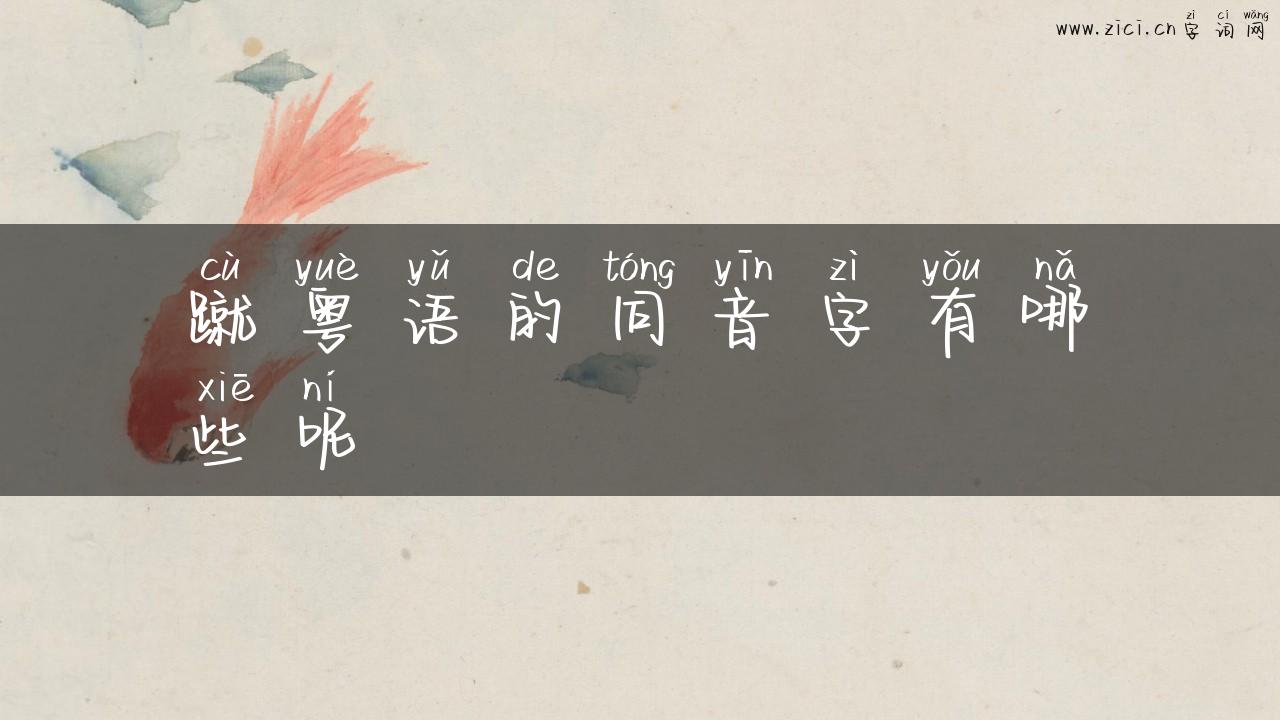 zì cí wǎng
www.zici.cn 字 词 网
cù yuè yǔ de tóng yīn zì yǒu nǎ
蹴 粤 语 的 同 音 字 有 哪
xiē ní
些 呢